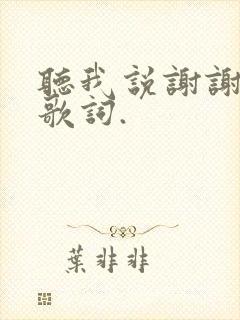 聽我説謝謝
歌詞.
葉非非